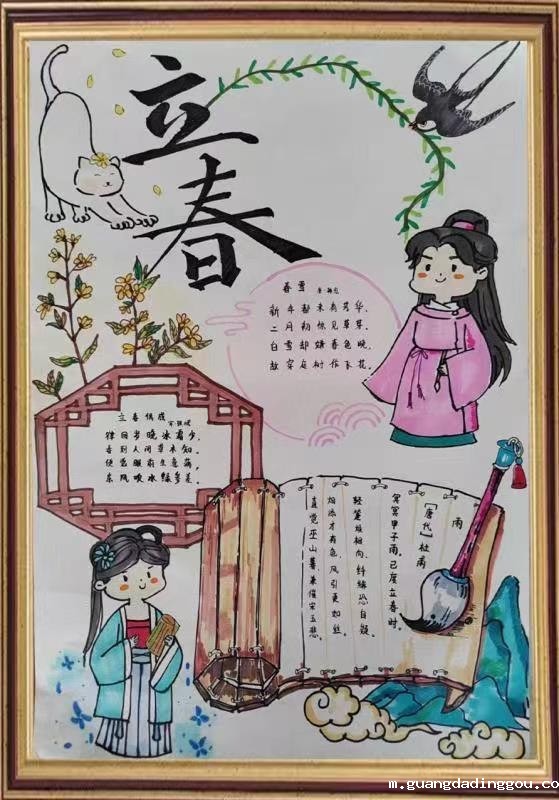 立春
春雪 唐·韩愈
新年都未有芳华,
二月初惊见草芽。
白雪却嫌春色晚,
故穿庭树作飞花。
立春偶成
宋·张栻
律回岁晚冰霜少,
春到人间草木知。
便觉眼前生意满,
东风吹水绿参差。
雨
[唐代]杜甫
冥冥甲子雨,已度立春时。
轻箑烦相向,纤絺恐自疑。
烟添才有色,风引更如丝。
直觉巫山暮,兼催宋玉悲。
m.guangdadinggou.co